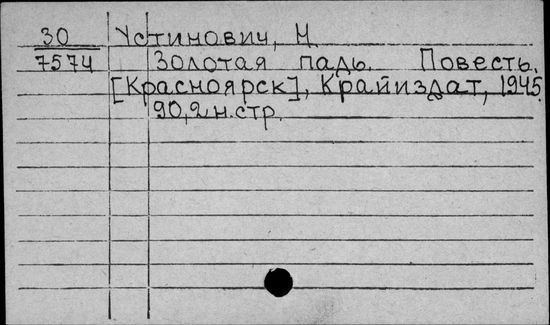 30 Устинович, Н
7574 Золотая падь. Повесть.
[Красноярск], Крайиздат, 1945.
90,2 н.стр.